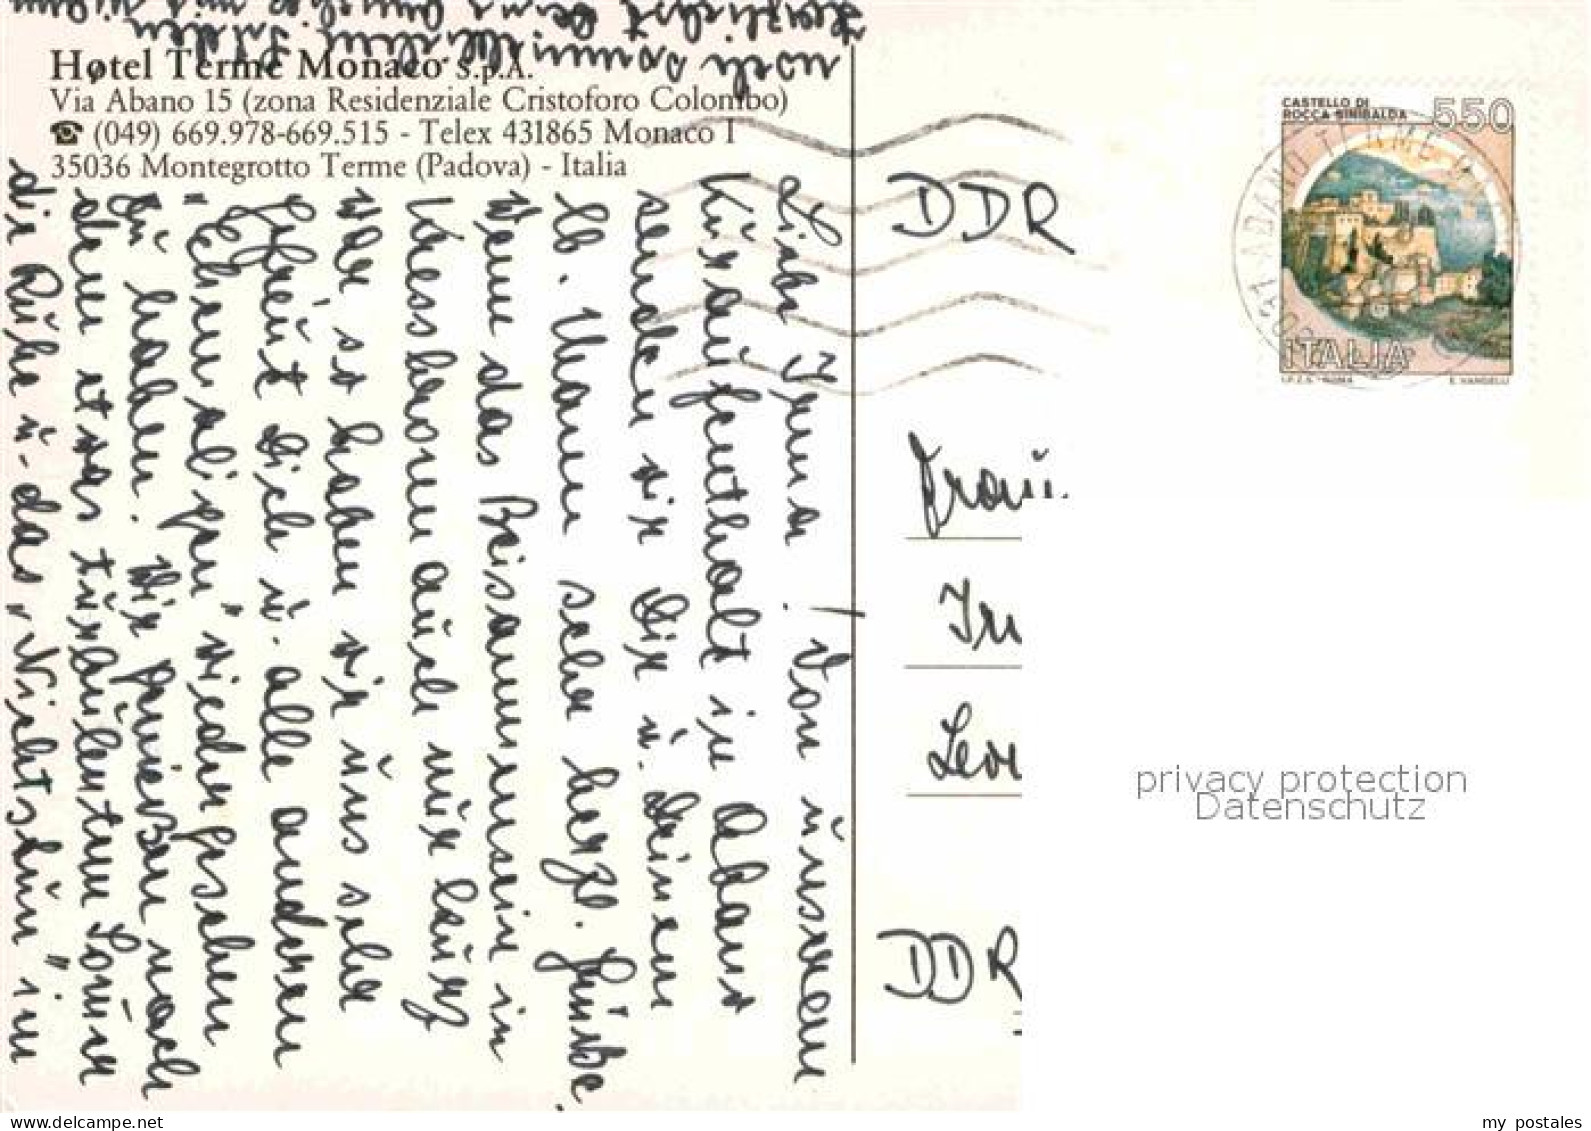 Hotel Terme Monaco S.p.A.
Via Abano 15 (zona Residenziale Cristoforo Colombo)
☎ (049) 669.978-669.515 - Telex 431865 Monaco I
35036 Montegrotto Terme (Padova) - Italia
Liebe Irma! Von unserem
Kuraufenthalt in Abano
senden wir Dir u. Deinem
lb. Mann sehr herzl. Grüße.
Wenn das Beisammensein in
Kressbronn auch nur kurz
war so haben wir uns sehr
gefreut Dich u. alle anderen
"Ehemaligen" wiedergesehen
zu haben. Wir genießen nach
dem etwas turbulenten Sommer
die Ruhe u. das "Nichtstun" im
noch sonnigen Süden
CASTELLO DI
ROCCA SINIBALDA
550
ITALIA
I.P.Z.S. - ROMA
E. VANGELLI
ABANO TERME
DDR
Frau
Leo
DDR
privacy protection
Datenschutz
my postales